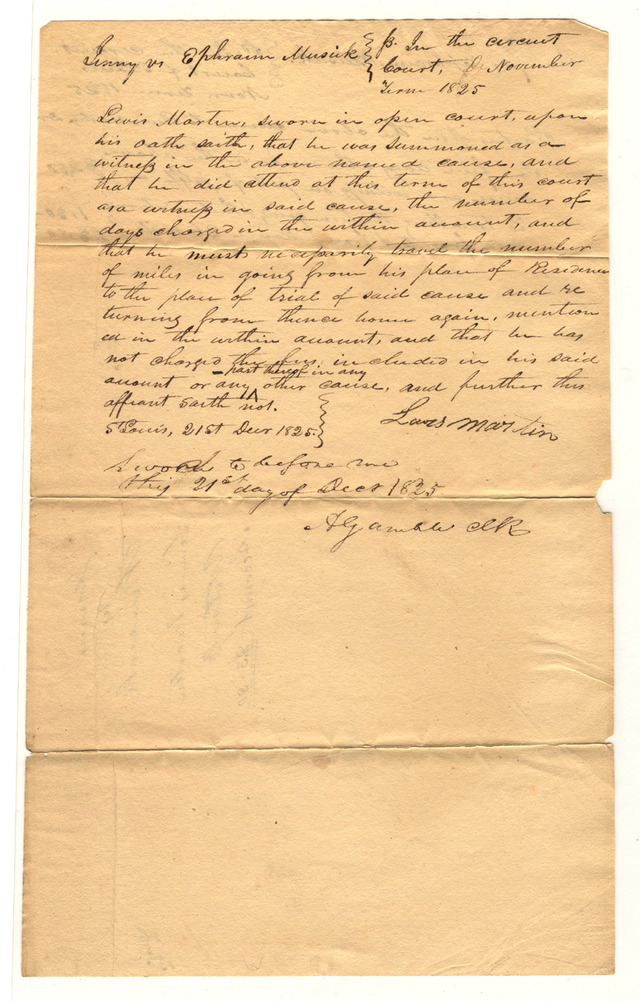 Jinny vs Ephraim Musick } In the circuit
Court, November
Term 1825
Lewis Martin, sworn in open court, upon
his oath saith, that he was summoned as a
witness in the above named cause, and
that he did attend at this term of this court
as a witness in said cause, the number of
days charged in the within amount, and
that he must necessarily travel the number
of miles in going from his place of Residence
to the place of trial of said cause and re
turning from thence home again, mention
ed in the within amount, and that he has
not charged the fees, included in his said
part thereof in any
amount or any ^ other cause, and further this
affiant saith not.
St Louis, 21st Decr 1825. }
Martin
Sworn to before me
this 21st day of Decr 1825
A Gamble clk